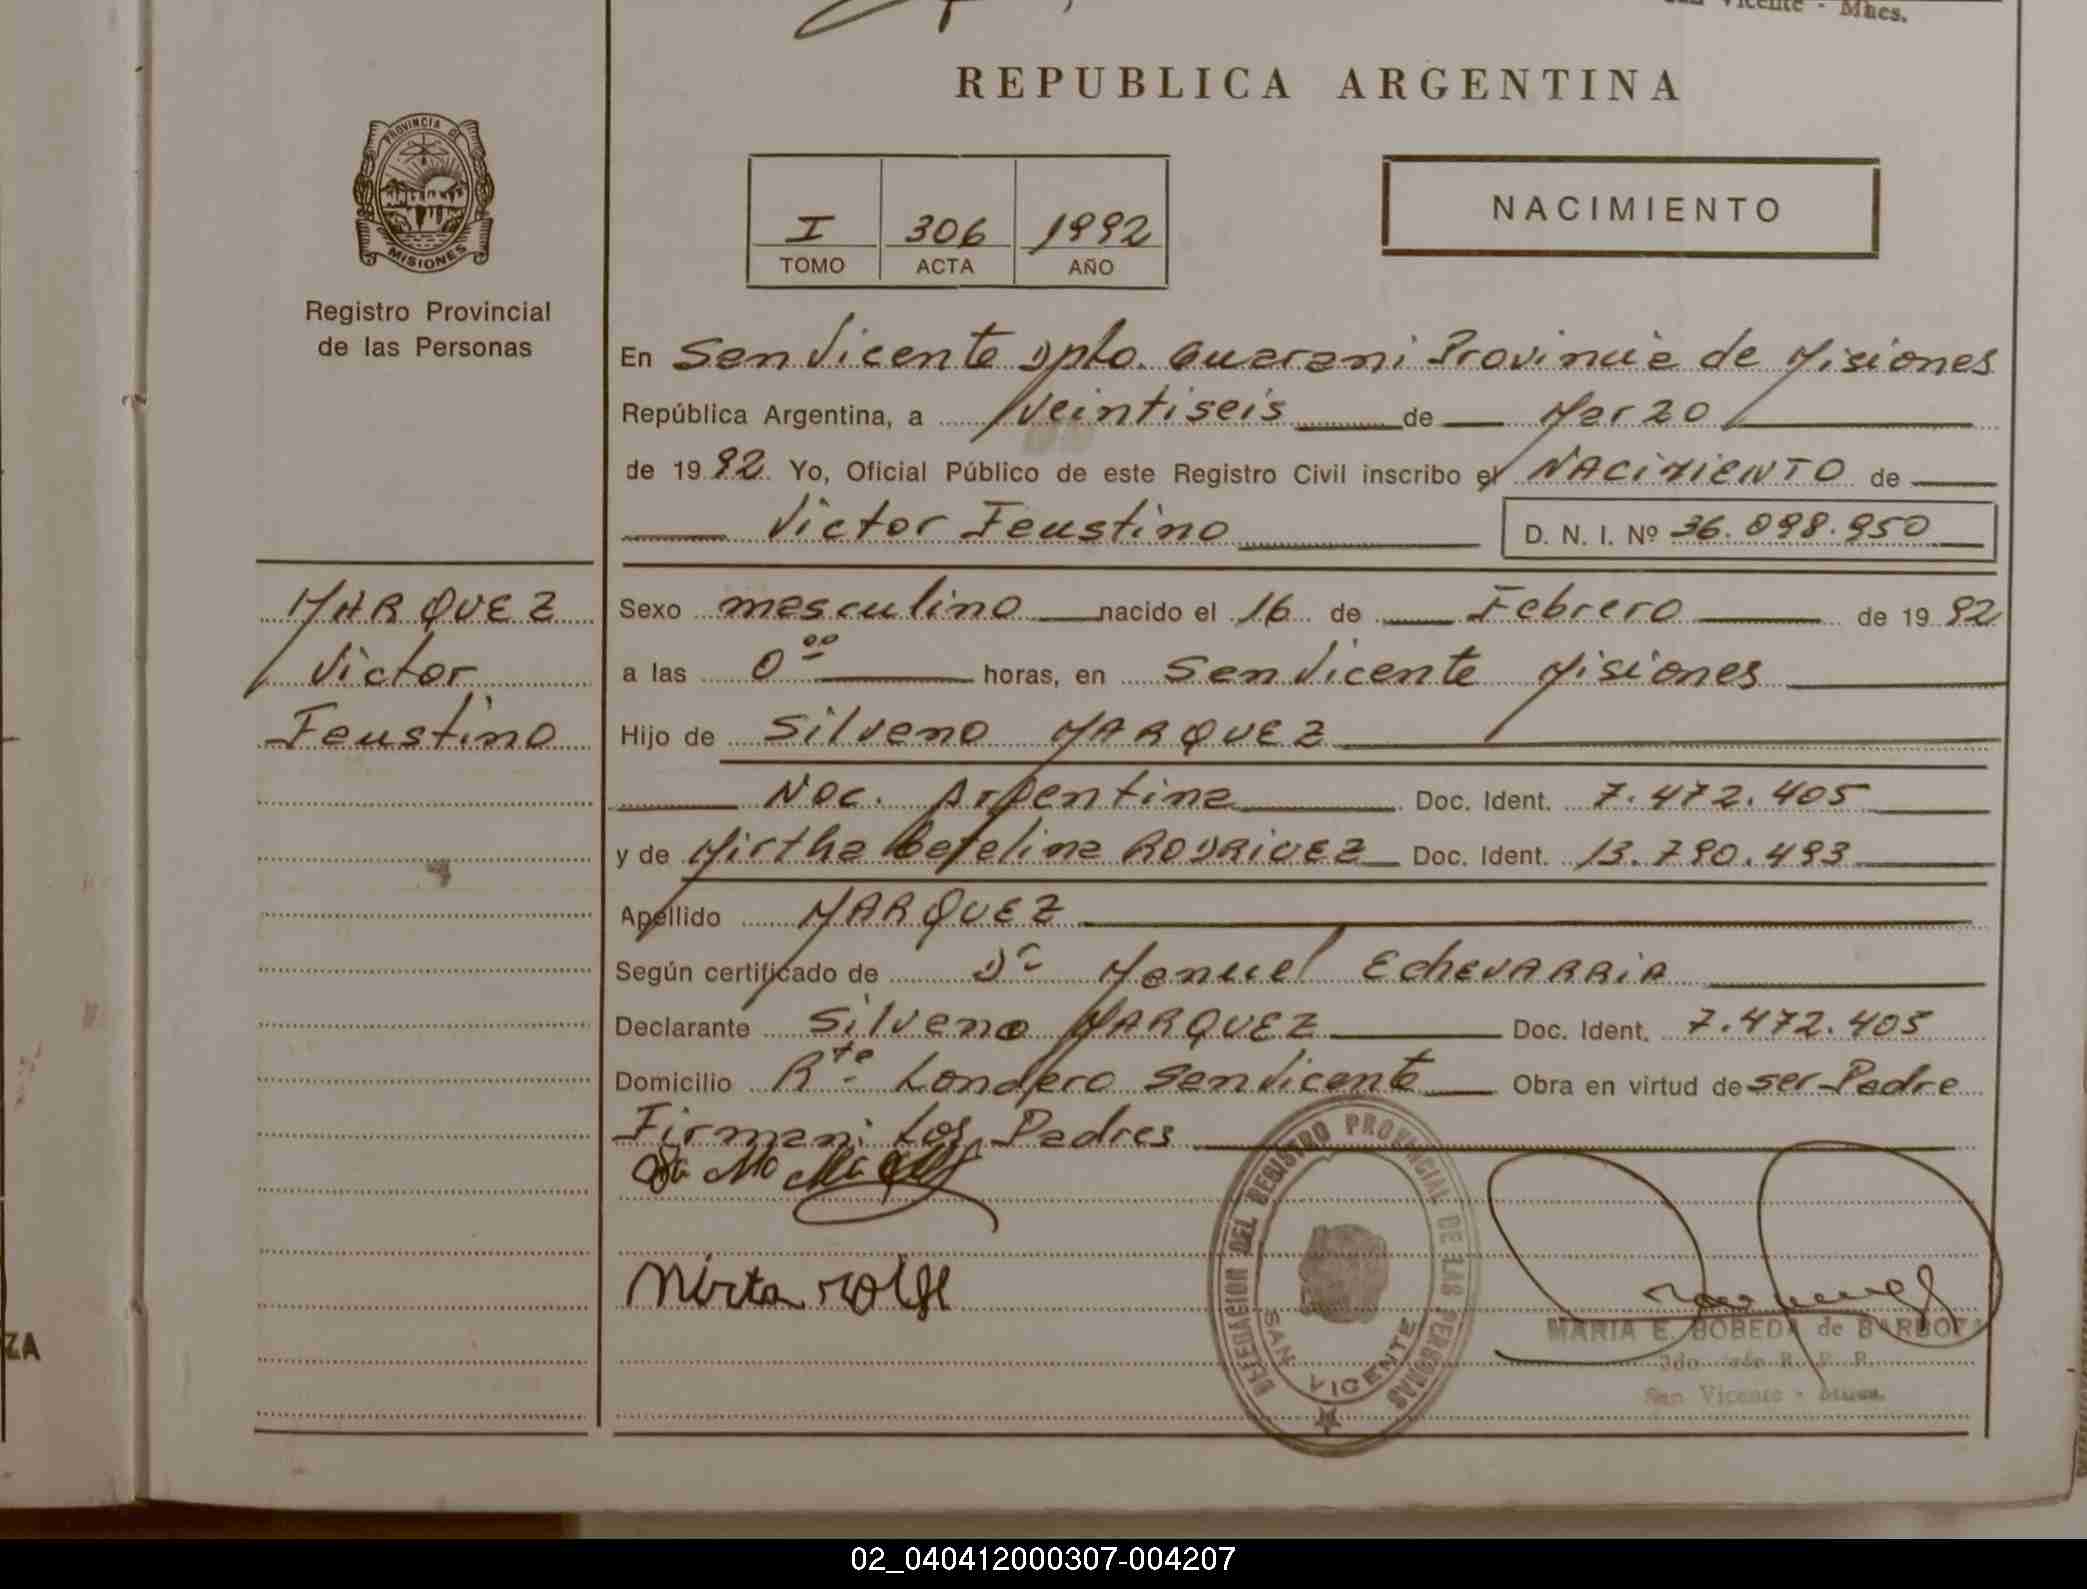 San Vicente - Mnes.
REPUBLICA ARGENTINA
PROVINCIA DE
MISIONES
Registro Provincial
de las Personas
I 306 1992
TOMO ACTA AÑO
NACIMIENTO
En San Vicente Dpto. Guarani Provincia de Misiones
República Argentina, a veintiseis de Marzo
de 1992. Yo, Oficial Público de este Registro Civil inscribo el NACIMIENTO de
Victor Faustino D. N. I. Nº 36.098.950
MARQUEZ
Victor
Faustino
Sexo masculino nacido el 16 de Febrero de 1992
a las 0 00 horas, en San Vicente Misiones
Hijo de Silveno MARQUEZ
Nac. Argentina Doc. Ident. 7.472.405
y de Mirtha RODRIGUEZ Doc. Ident. 13.790.493
Apellido MARQUEZ
Según certificado de Dr Manuel EcheVARRIA
Declarante Silveno MARQUEZ Doc. Ident. 7.472.405
Domicilio Rte. Londero San Vicente Obra en virtud de ser Padre
Firman: Los Padres
DELEGACION DEL REGISTRO PROVINCIAL DE LAS PERSONAS
SAN VICENTE
Mirta
MARIA E. BOBEDA de BARBOZA
R. P. P.
San Vicente - Mnes.
ZA
02_040412000307-004207